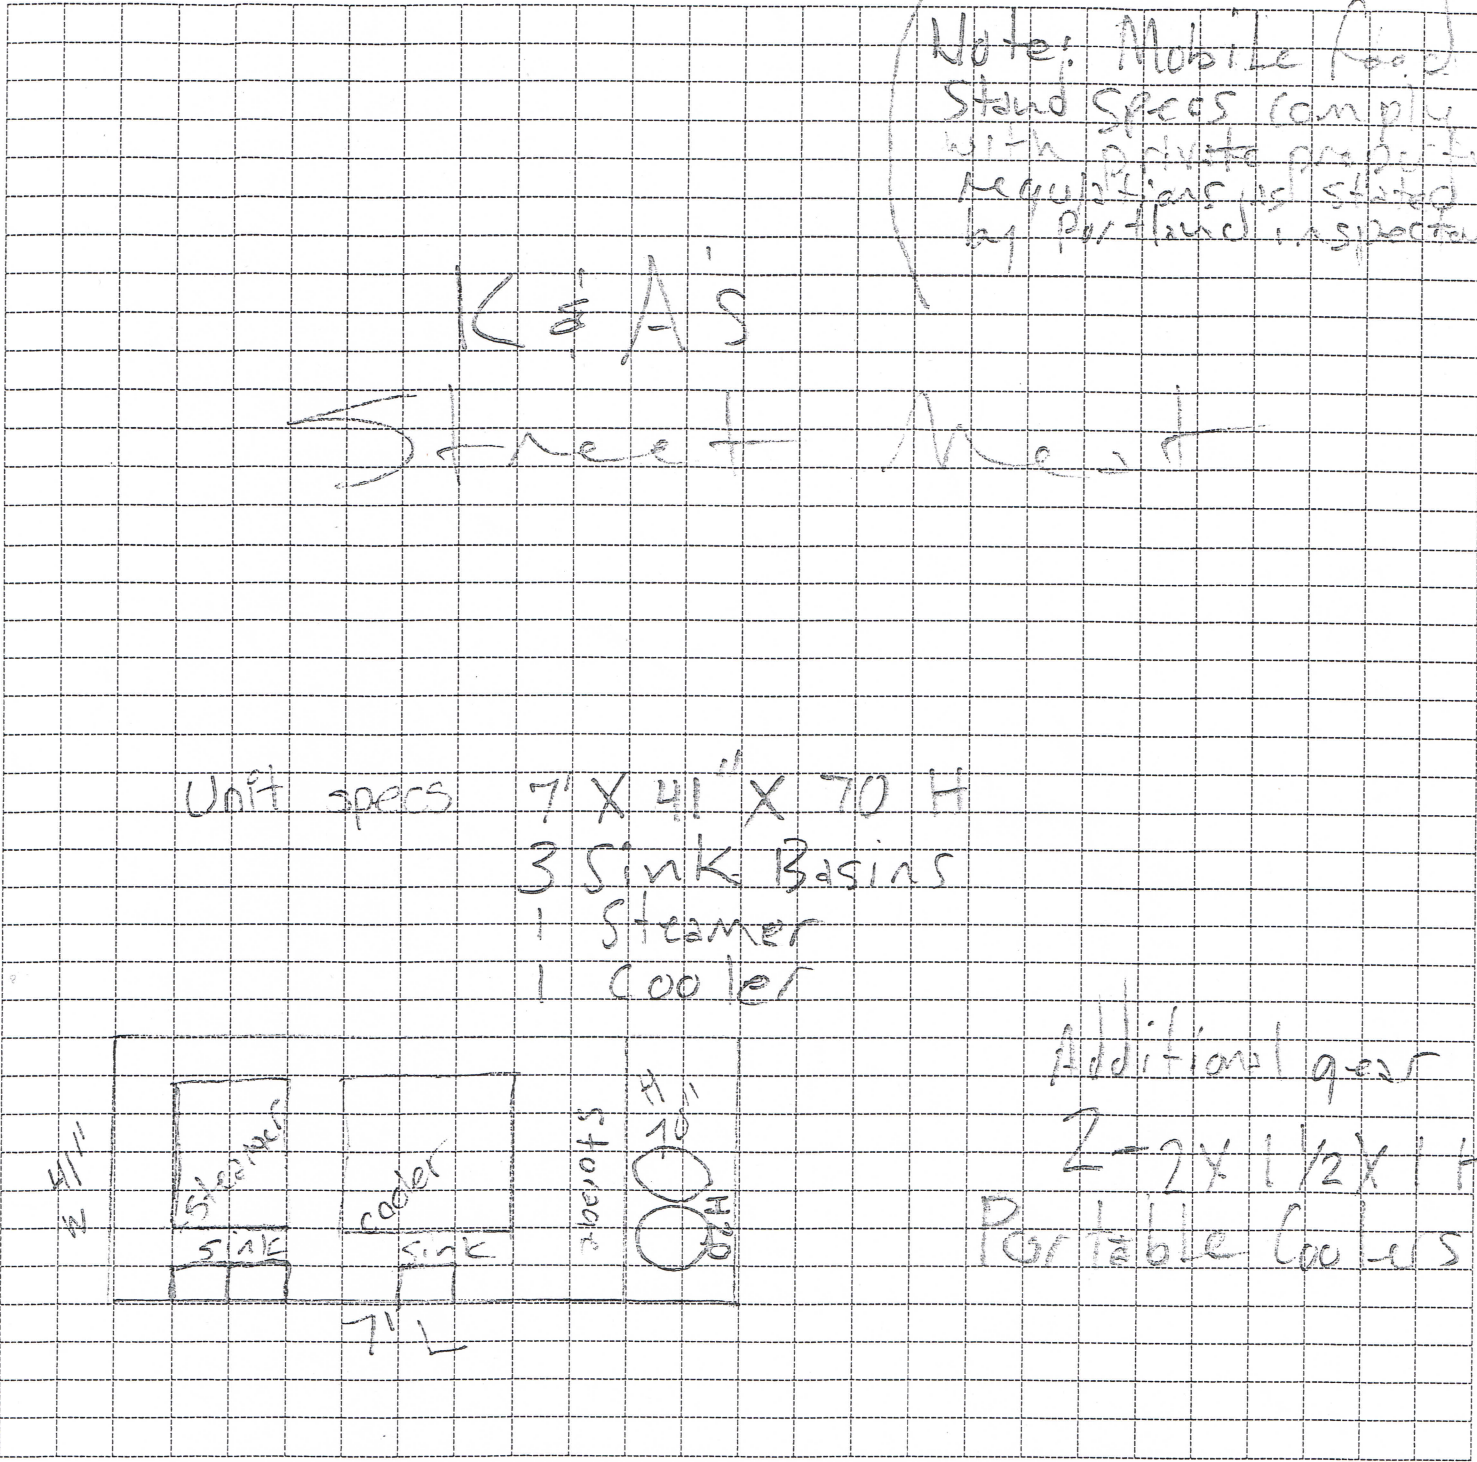 Note: Mobile food
Stand Specs comply
with private propert
regulations as stated
by Portland inspector
K & A's
Street Meat
Unit specs 7' X 41" X 70 H
3 Sink Basins
1 Steamer
1 Cooler
Additional gear
2 - 2 X 1 1/2 X 1 H
Portable Coolers
41" W
Steamer
cooler
Storage
H 70"
H20
sink
sink
7' L